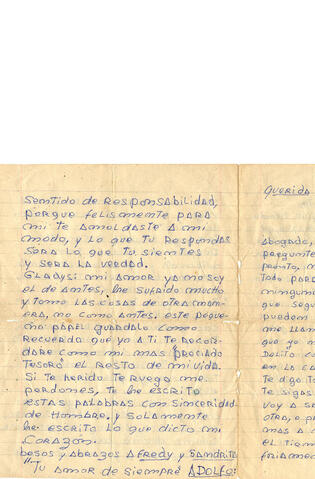 sentido de Responsabilidad,
porque felismente para
mi te amoldaste a mi
modo, y lo que tu Respondas
sera lo que tu sientes
y sera la verdad.
Gladys: mi amor ya no soy
el de antes, he sufrido mucho
y tomo las cosas de otra man-
era, no como antes, este peque-
ño papel guardalo como
Recuerdo que yo a ti te Recor-
dare como mi mas preciado
tesoro el resto de mi vida.
Si te herido te ruego me
perdones, te he escrito
estas palabras con sinceridad
de Hombre, y solamente
he escrito lo que dicto mi
Corazon.
besos y Abrazos Afredy y Sandrita
"Tu amor de siempre ADOLFO:
querida
Abogado,
pregunte
pronto, m
todo par
ningun
que segu
pueden
me llam
que yo n
Delito c
en la ca
Te digo t
Te sigas
voy a se
otra, o p
mas a c
el tiem